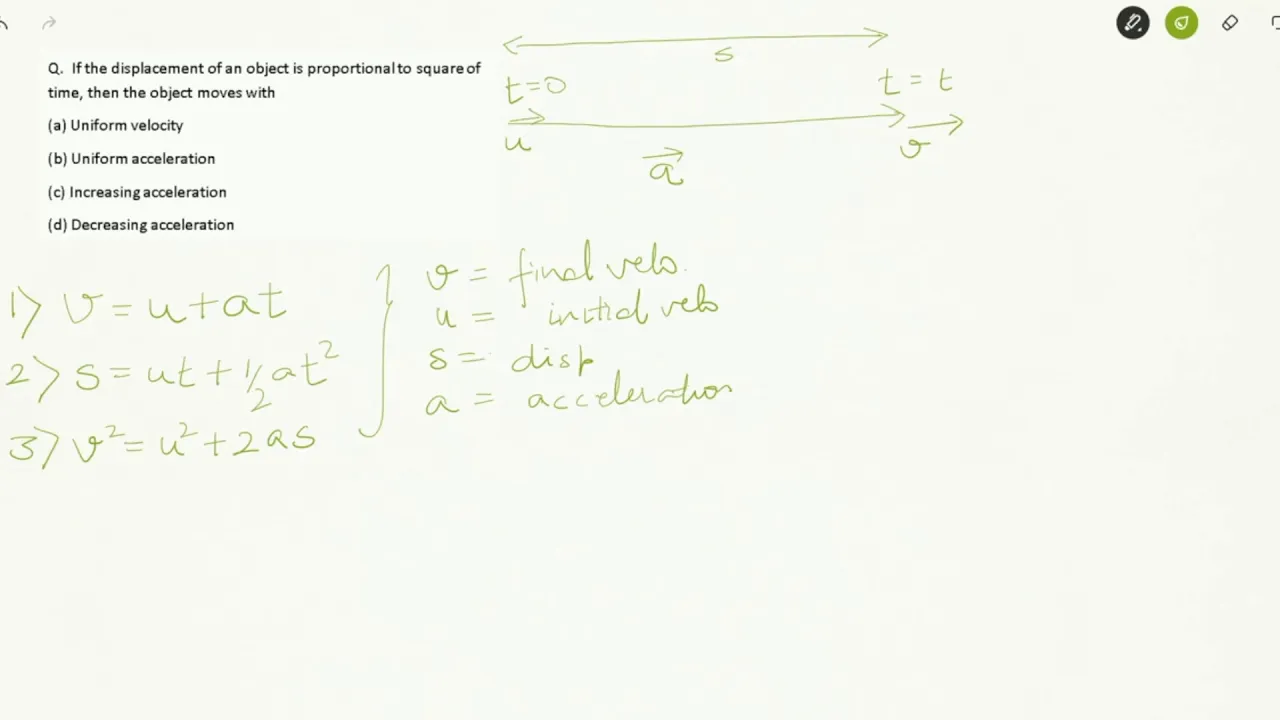 Q. If the displacement of an object is proportional to square of
time, then the object moves with
(a) Uniform velocity
(b) Uniform acceleration
(c) Increasing acceleration
(d) Decreasing acceleration
s
t=0
t = t
u
v
a
1) v = u+at
2) s = ut + 1/2 at²
3) v² = u² + 2as
v = final velo.
u = initial velo
s = disp
a = acceleration